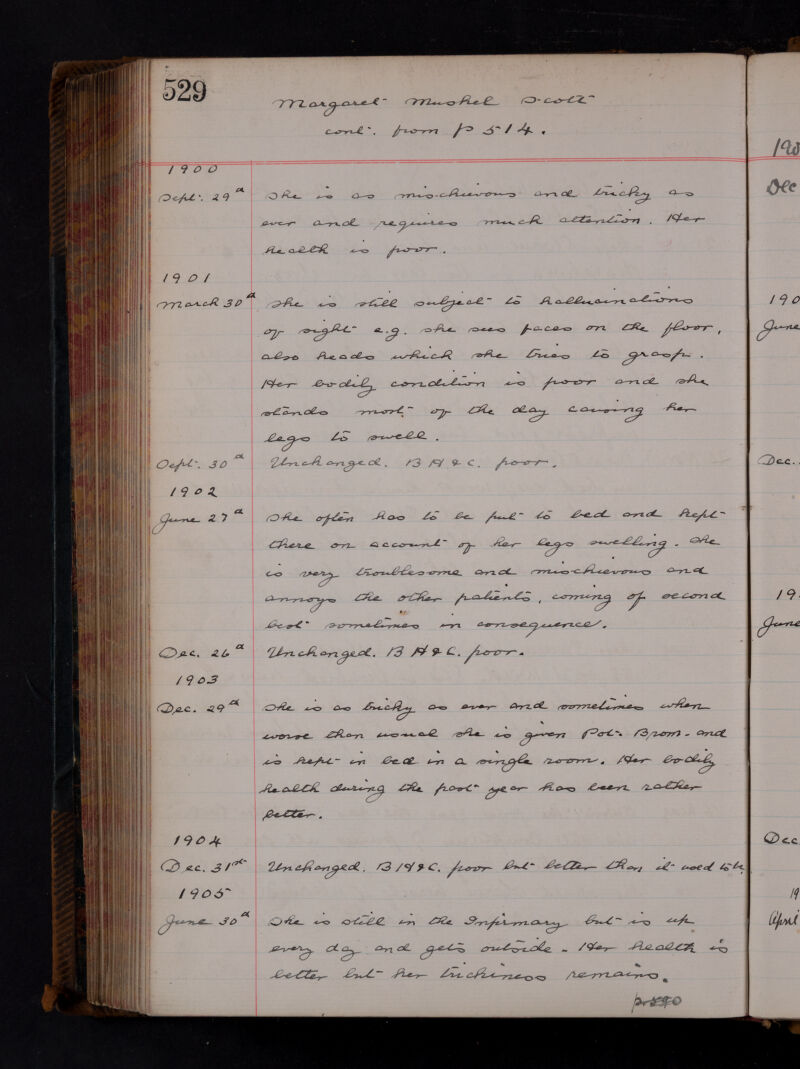 529
Margaret Mushet Scott
cont. from p 514.
1900
Sept. 29th She is as mischievous and tricky as
ever and requires much attention. Her
health is poor.
1901
March 30th She is still subject to hallucinations
of sight e.g. she sees faces on the floor,
also heads which she tries to grasp.
Her bodily condition is poor and she
stands most of the day causing her
legs to swell.
Sept. 30th Unchanged. B H & C. poor.
1902
June 27th She often has to be put to bed and kept
there on account of her legs swelling. She
is very troublesome and mischievous and
annoys the other patients, coming of second
best sometimes in consequence.
Dec. 26th Unchanged. B H & C. poor.
1903
Dec. 29th She is as tricky as ever and sometimes when
worse than usual she is given Pot. Brom. and
is kept in bed in a single room. Her bodily
health during the past year has been rather
better.
1904
Dec. 31st Unchanged. B H & C. poor but better than it used to be
1905
June 30th She is still in the Infirmary but is up
every day and gets outside. Her health is
better but her trickiness remains.
190
Dec
190
June
Dec.
19
June
Dec
19
April